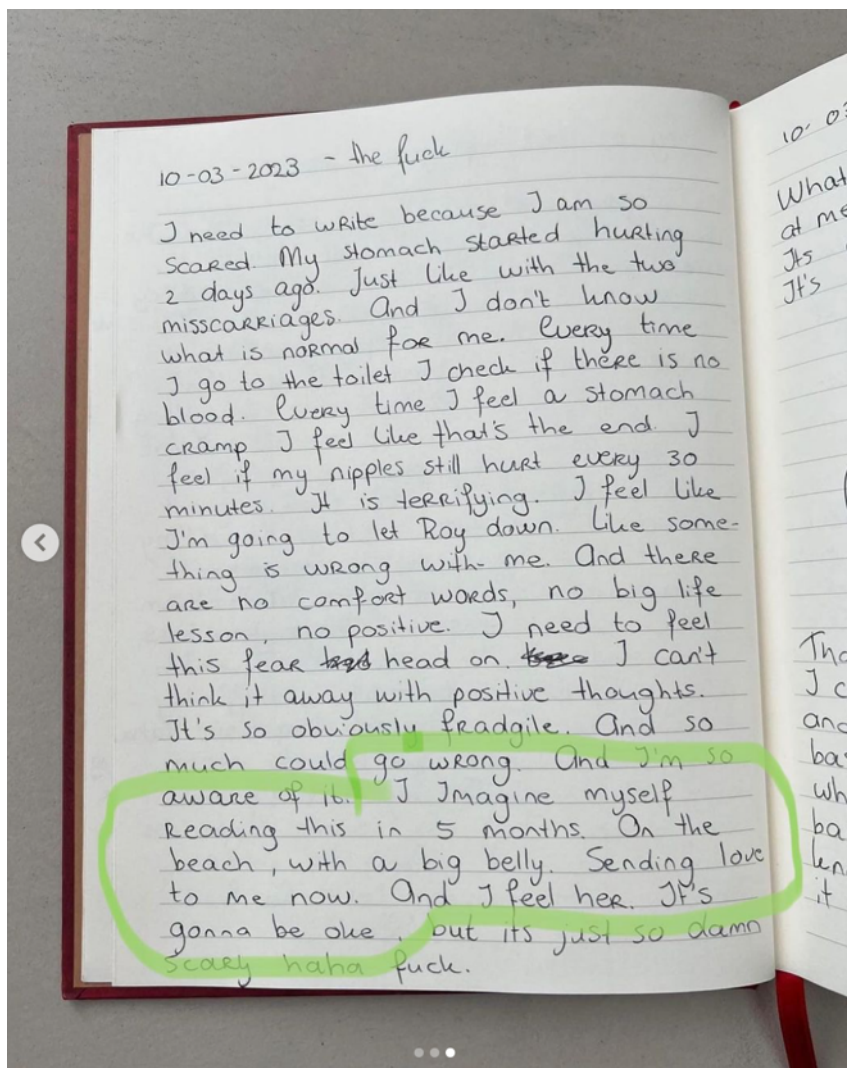 10-03-2023 - the fuck
I need to write because I am so
scared. My stomach started hurting
2 days ago. Just like with the two
misscarriages. And I don't know
what is normal for me. Every time
I go to the toilet I check if there is no
blood. Every time I feel a stomach
cramp I feel like that's the end. I
feel if my nipples still hurt every 30
minutes. It is terrifying. I feel like
I'm going to let Roy down. Like some-
thing is wrong with me. And there
are no comfort words, no big life
lesson, no positive. I need to feel
this fear head on. I can't
think it away with positive thoughts.
It's so obviously fradgile. And so
much could go wrong. And I'm so
aware of it. I Imagine myself
Reading this in 5 months. On the
beach, with a big belly. Sending love
to me now. And I feel her. It's
gonna be oke, but its just so damn
scary haha fuck.
10-03
What
at me
Its
It's
I c
and
ba
wh
ba
it